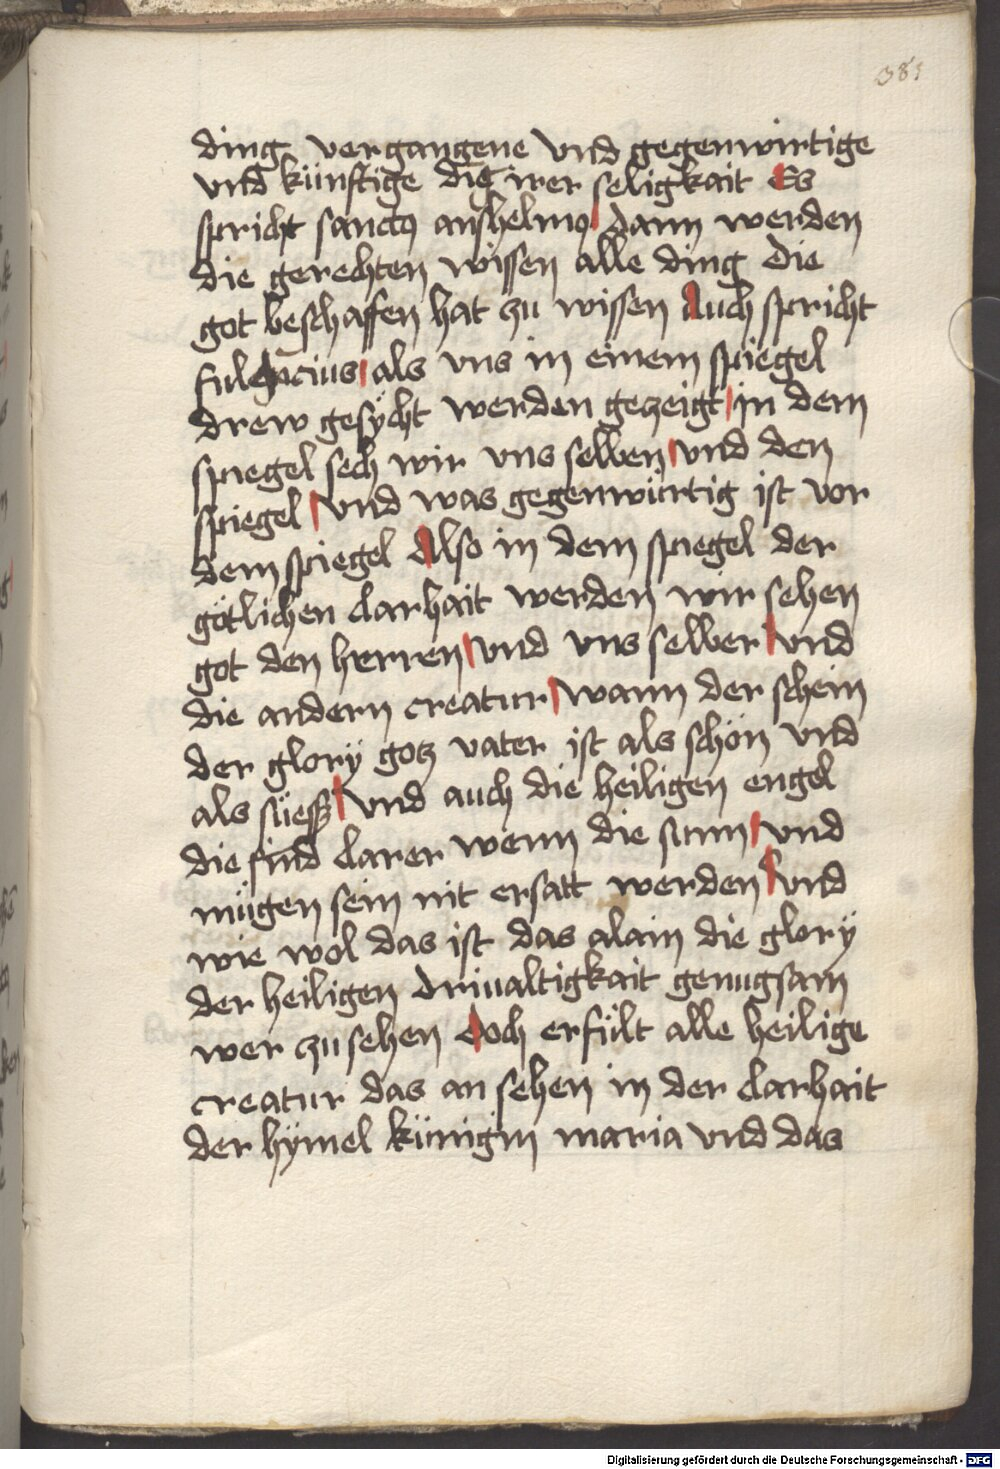 381
ding vergangene vnd gegenwirtige
vnd künftige die irer seligkait Es
spricht sanctus anshelmus dann werden
die gerechten wissen alle ding die
got beschaffen hat zu wissen Auch spricht
fulgncius als vns in einem spiegel
drew gesÿcht werden gezeigt in dem
spiegel sech wir vns selben vnd den
spiegel vnd was gegenwürtig ist vor
dem spiegel Also in dem spiegel der
götlichen clarhait werden wir sehen
got den herren vnd vns selber vnd
die andern creatur wann der schein
der glorÿ gotz vater ist als schön vnd
als süess vnd auch die heiligen engel
die sind clarer wenn die sunn vnd
mügen sein nit ersatt werden vnd
wie wol das ist das alain die glorÿ
der heiligen driualtigkait genugsam
wer zu sehen doch erfült alle heilige
creatur das an sehen in der clarhait
der hÿmel künigin maria vnd das
Digitalisierung gefördert durch die Deutsche Forschungsgemeinschaft - DFG